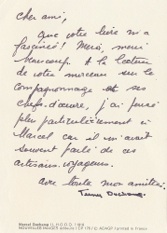 cher ami,
que votre livre m'a
fasciné! Merci, merci
beaucoup. A la lecture
de votre morceau sur le
compagnonnage et ses
chefs-d'œuvre, j'ai pensé
plus particulièrement à
Marcel car il m'avait
souvent parlé de ces
artisans-voyageurs.
avec toute mon amitié,
Teeny Duchamp
Marcel Duchamp